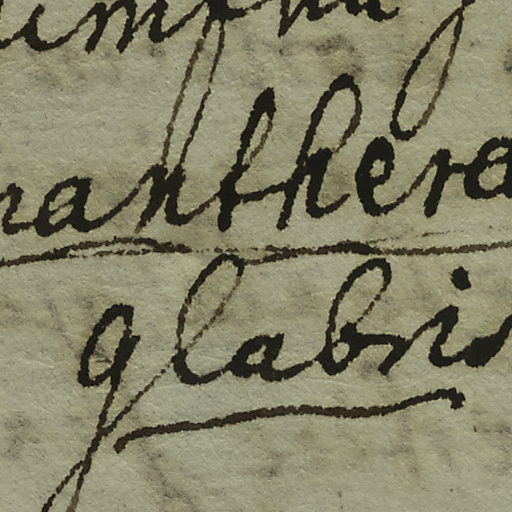 nanthera
glabris